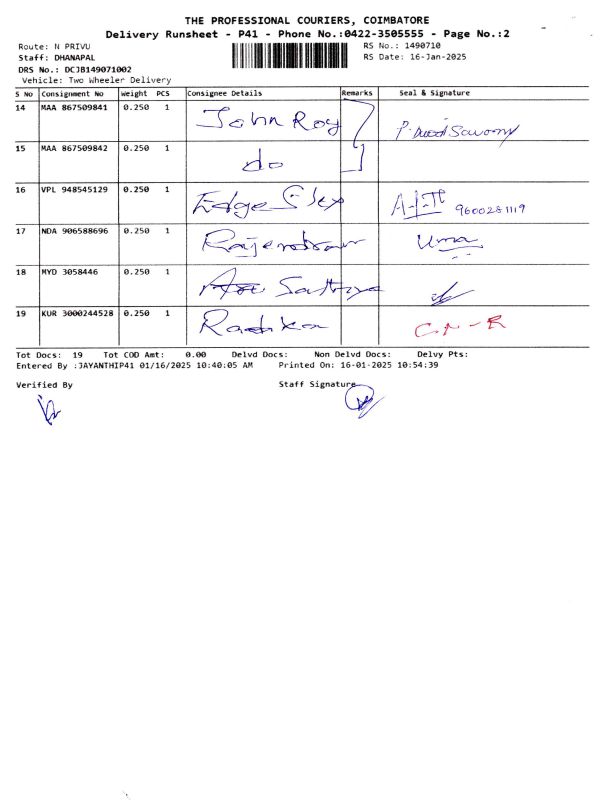 THE PROFESSIONAL COURIERS, COIMBATORE
Delivery Runsheet - P41 - Phone No.:0422-3505555 - Page No.:2
Route: N PRIVU RS No.: 1490710
Staff: DHANAPAL RS Date: 16-Jan-2025
DRS No.: DCJB149071002
Vehicle: Two Wheeler Delivery
S No Consignment No Weight PCS Consignee Details Remarks Seal & Signature
14 MAA 867509841 0.250 1 John Roy
15 MAA 867509842 0.250 1 do
16 VPL 948545129 0.250 1 Edge 9600281119
17 NDA 906588696 0.250 1 Rajendran Uma
18 MYD 3058446 0.250 1 Sathya
19 KUR 3000244528 0.250 1 Radhka C-N-R
Tot Docs: 19 Tot COD Amt: 0.00 Delvd Docs: Non Delvd Docs: Delvy Pts:
Entered By :JAYANTHIP41 01/16/2025 10:40:05 AM Printed On: 16-01-2025 10:54:39
Verified By Staff Signature